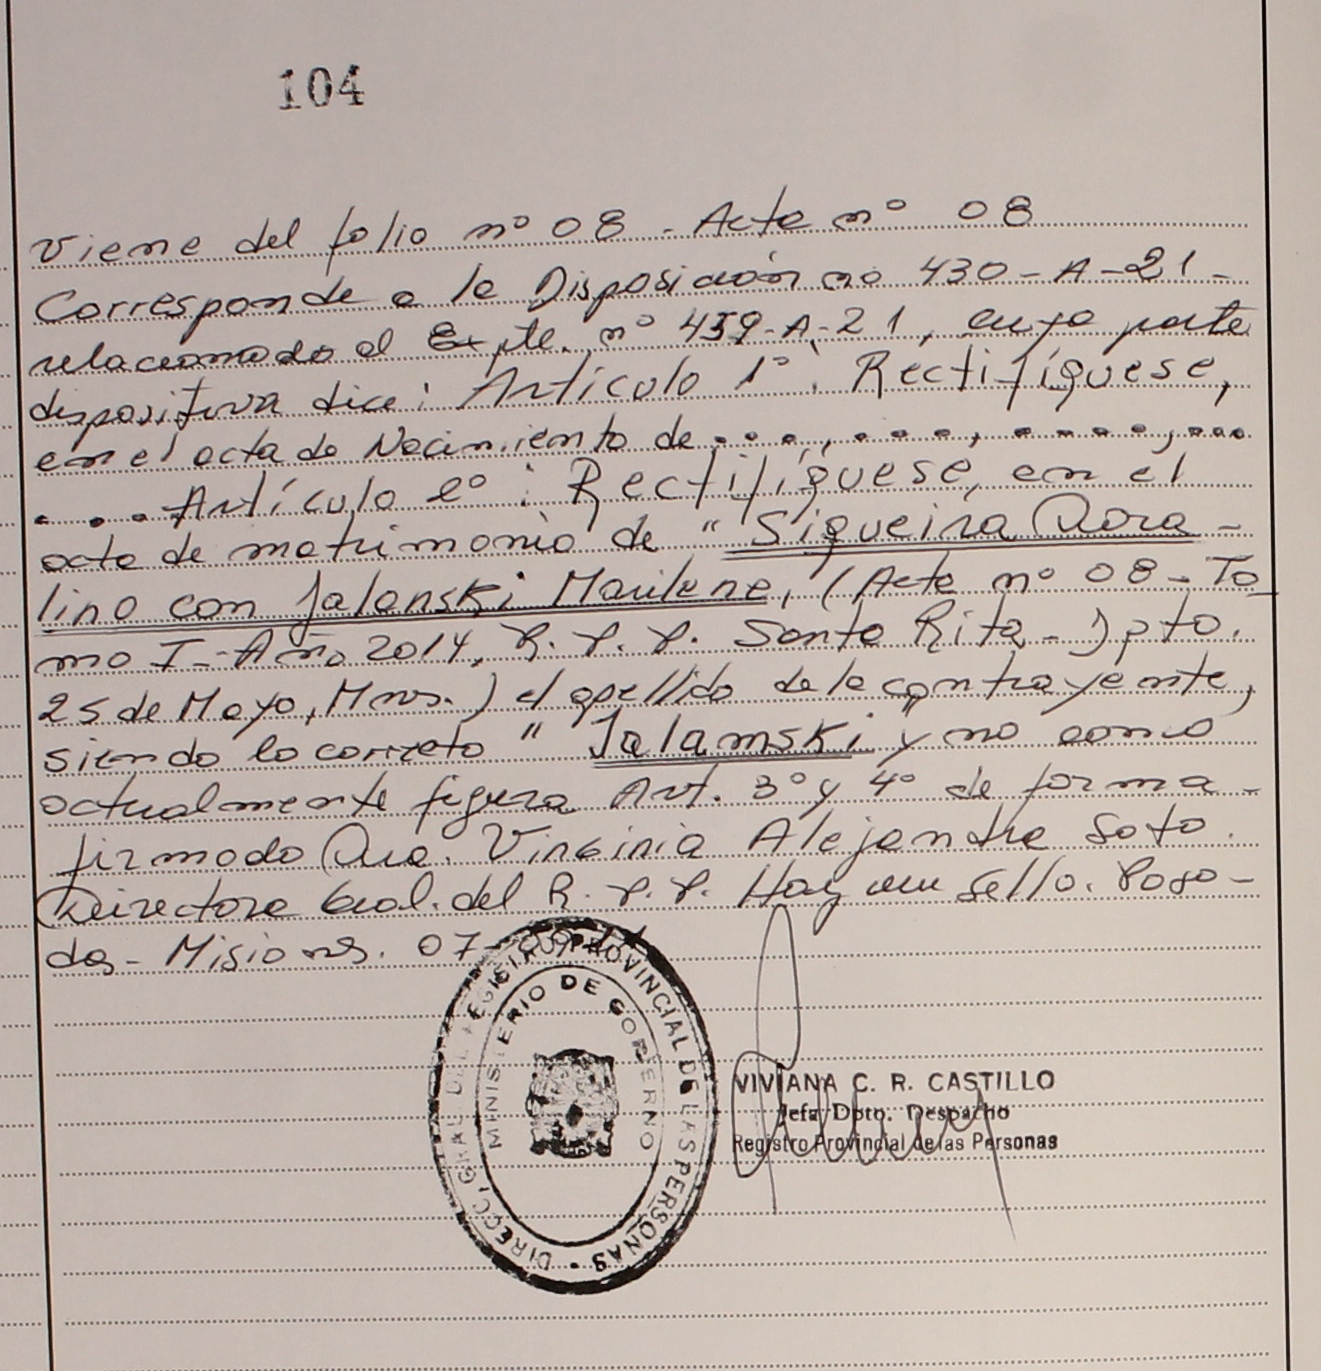 104
Viene del folio nº 08 - Acta nº 08
Corresponde a la Disposición nº 430-A-21-
relacionado al Expte. nº 459-A-21, cuya parte
dispositiva dice: Artículo 1º: Rectifíquese,
en el acta de Nacimiento de ...., ...., ....., ...
.... Artículo 2º: Rectifíquese, en el
acta de matrimonio de "Siqueira Dora-
lino con Jalanski Marilene, (Acta nº 08 - To
mo I - Año 2014, R. P. P. Santa Rita - Dpto.
25 de Mayo, Mnes.) el apellido de la contrayente,
siendo lo correto " Jalamski y no como
actualmente figura. Art. 3º y 4º de forma -
firmado Dra. Virginia Alejandra Soto.
Directora Gral. del R. P. P. Hay un sello. Posa-
das - Misiones. 07-
DIRECC. GRAL. DEL REGISTRO PROVINCIAL DE LAS PERSONAS
MINISTERIO DE GOBIERNO
VIVIANA C. R. CASTILLO
Jefa Dpto. Despacho
Registro Provincial de las Personas